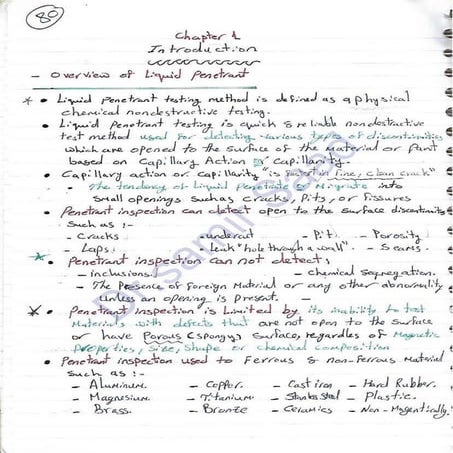 80
Chapter 1
Introduction
- Overview of Liquid Penetrant
* • Liquid Penetrant testing method is defined as a physical
chemical nondestructive testing.
• Liquid Penetrant testing is quick & reliable nondestructive
test method used for detecting various types of discontinuities
which are opened to the surface of the material or Part
based on Capillary Action or Capillarity.
• Capillary action or Capillarity "is fast in fine, clean crack"
- The tendency of liquid Penetrate or Migrate into
small openings such as cracks, Pits, or fissures
• Penetrant inspection can detect open to the surface discontinuities
such as :-
- Cracks - undercut - Pit. - Porosity
- Laps. - Leak "hole through a wall". - Seams.
* • Penetrant inspection can not detect;
- inclusions. - Chemical segregation.
- The Presence of Foreign Material or any other abnormality
unless an opening is present.
* • Penetrant inspection is Limited by its inability to test
Materials with defects that are not open to the surface
or have Porous (spongy) surface, regardless of Magnetic
Properties, Size, Shape or Chemical Composition
• Penetrant inspection used to Ferrous & non-Ferrous Material
such as :-
- Aluminum. - Copper. - Cast iron - Hard Rubber.
- Magnesium - Titanium - Stainless Steel - Plastic.
- Brass. - Bronze - Ceramics - Non-Magentically.